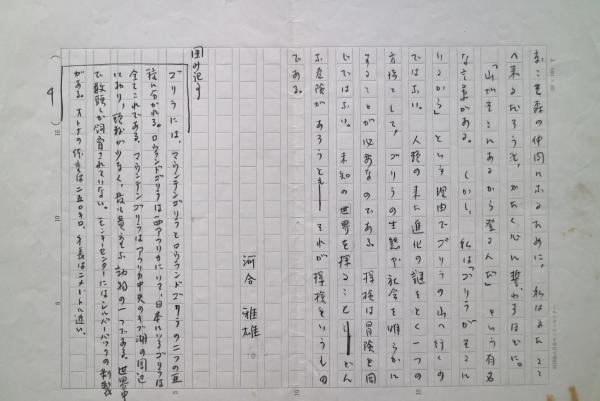 な、こも森の仲間になるために、私はまたここ
へ来るだろうと、かたく心に誓わるほどに。
「山がそこにあるから登るんだ」という有名
な言葉がある。しかし、私は「ゴリラがそこに
いるから」という理由でゴリラの山へ行くの
ではない。人類の来た進化の謎をとく一つの
方法として、ゴリラの生態や社会を明らかに
することが必要なのである。探検は冒険と同
じではない。未知の世界を探ること どん
な危険があろうとも それが探検というもの
である。
河合雅雄
囲み記事
ゴリラには、マウンテンゴリラとロウランドゴリラの二つの亜
種に分かれる。ロウランドゴリラは西アフリカにいて、日本にいるゴリラは
全てこれである。マウンテンゴリラはアフリカ中央のキブ湖の周辺
におり、頭数が少なく、最も貴重な動物の一つである。世界中
で数頭しか飼育されていない。モンキーセンターにはシルバーバックの剥製
がある。オトナの体重は二五〇キロ、身長は二メートルに近い。